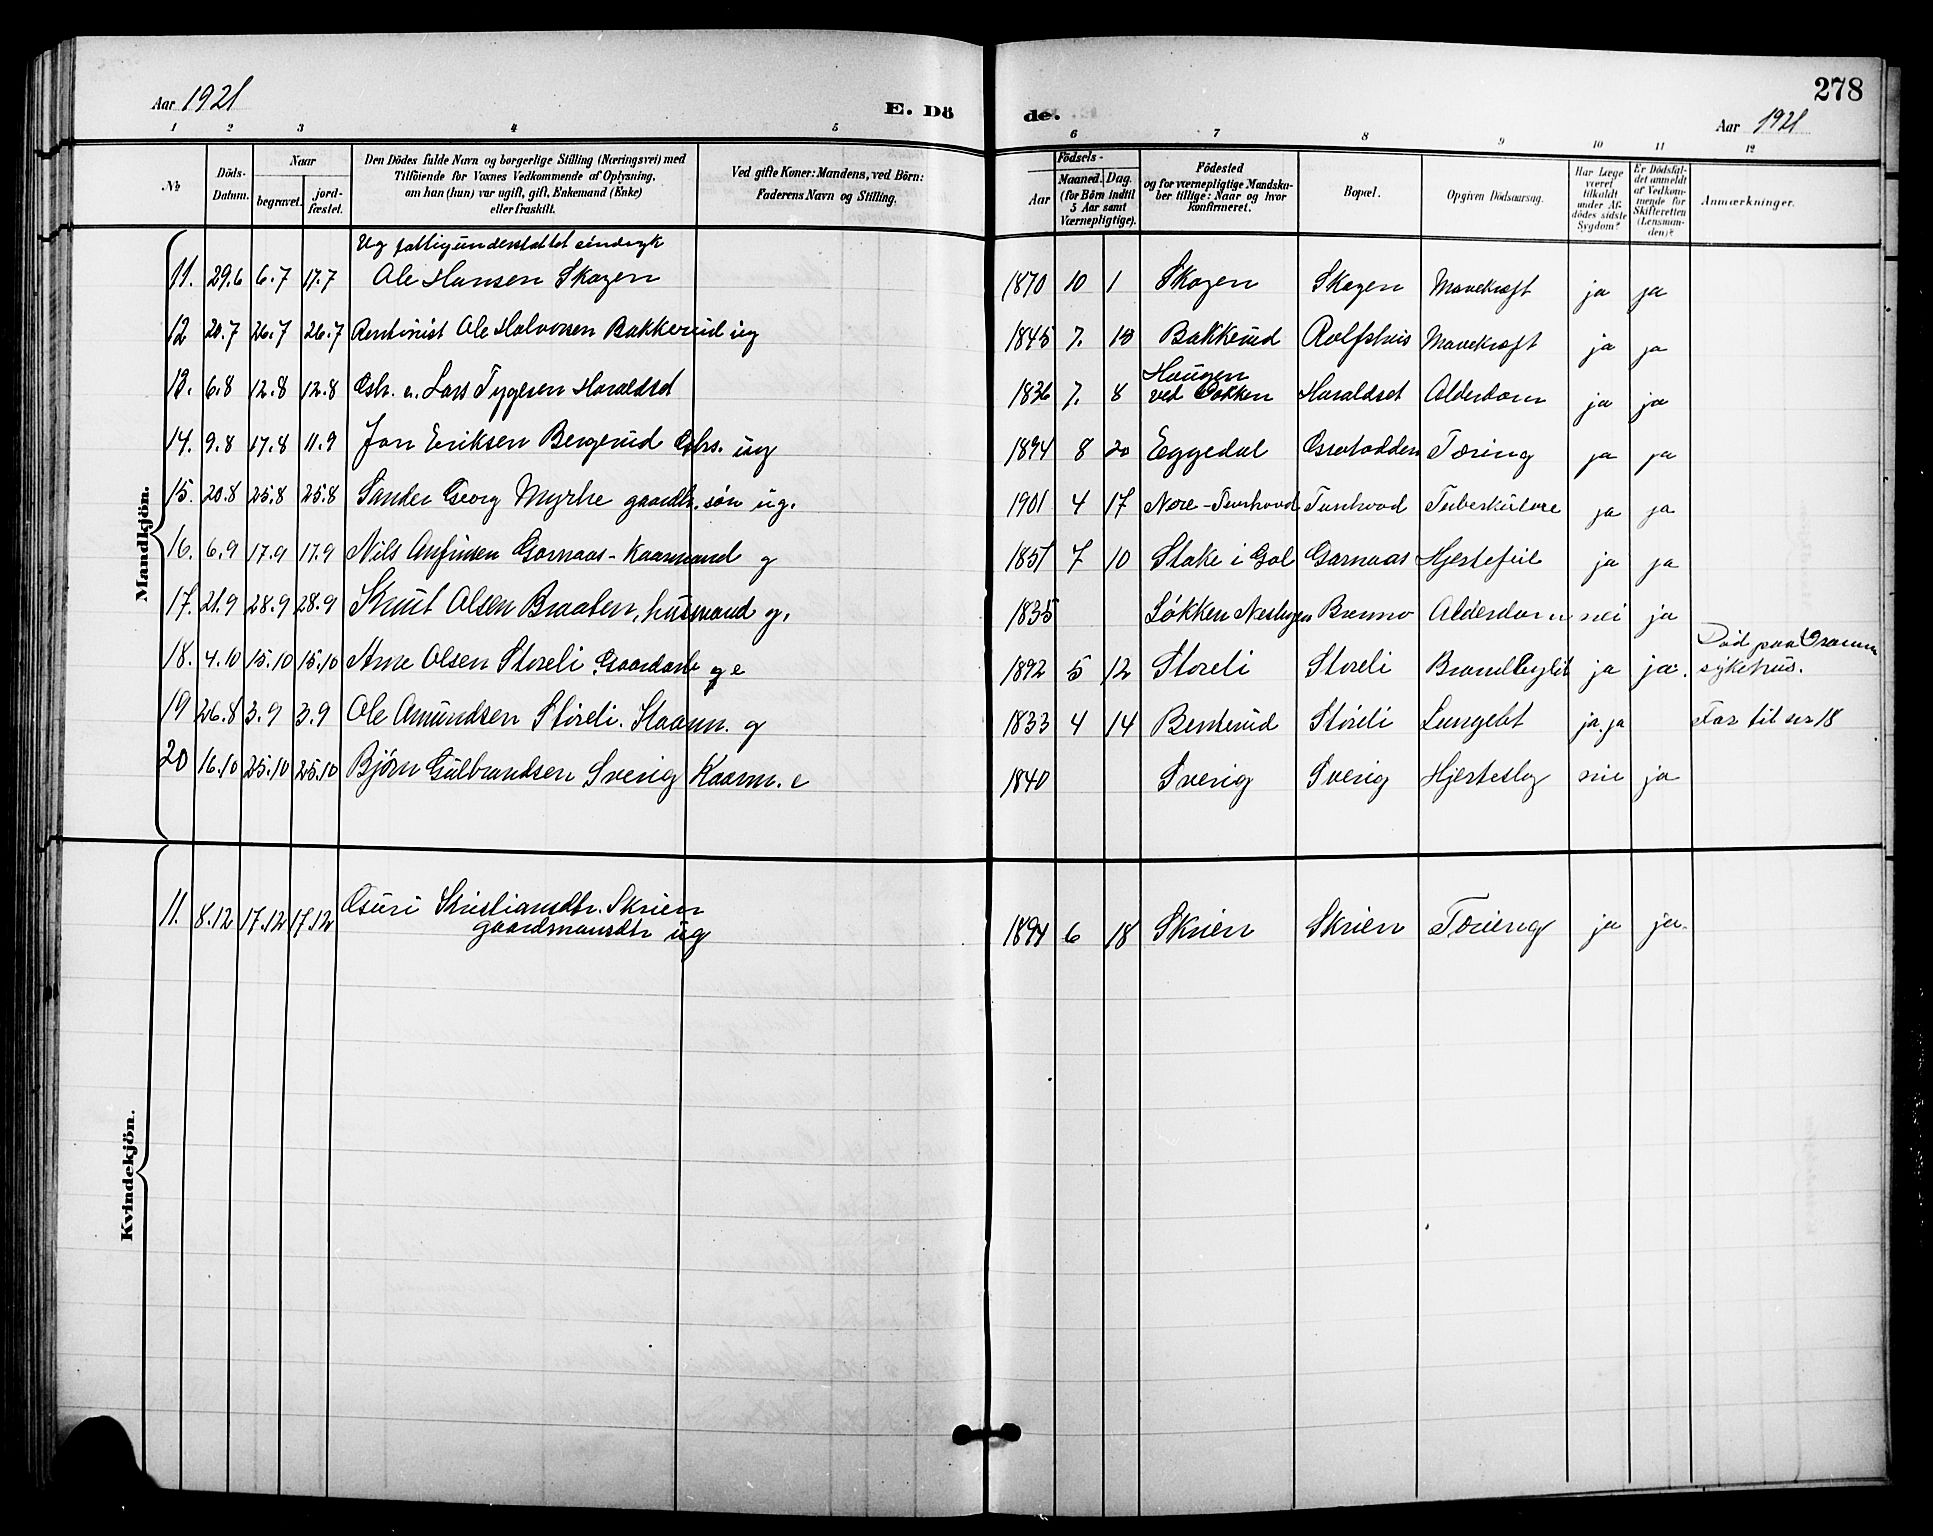 278
Aar 1921
E. Dö
de.
Aar 1921
1 2 3 4 5 6 7 8 9 10 11 12
No
Döds-Datum.
Naar
begravet.
jord-fæstet.
Den Dödes fulde Navn og borgerlige Stilling (Næringsvei) med
Tilföiende for Voxnes Vedkommende af Oplysning,
om han (hun) var ugift, gift, Enkemand (Enke)
eller fraskilt.
Ved gifte Koner: Mandens, ved Börn:
Faderens Navn og Stilling.
Födsels-
Aar
Maaned. Dag.
(for Börn indtil
5 Aar samt
Værnepligtige).
Födested
og for værnepligtige Mandska-
ber tillige: Naar og hvor
konfirmeret.
Bopæl.
Opgiven Dödsaarsag.
Har Læge
været
tilkaldt
under Af-
dödes sidste
Sygdom?
Er Dödsfal-
det anmeldt
af Vedkom-
mende for
Skifteretten
(Lensman-
den)?
Anmærkninger.
Mandkjön.
Ug fattigunderstøttet sindsyk
11. 29.6 6.7 17.7 Ole Hansen Skogen 1870 10 1 Skogen Skogen Mavekræft ja ja
12 20.7 26.7 26.7 Rentenist Ole Halvorsen Bakkerud ug 1845 7. 10 Bakkerud Rolfshus Mavekræft ja ja
13. 6.8 12.8 12.8 Lars Tygesen Haraldset 1836 7. 8 Haugen ved Bakken Haraldset Alderdom ja ja
14. 9.8 17.8 11.9 Jon Eriksen Bergerud ug 1894 8 20 Eggedal Tæring ja ja
15. 20.8 25.8 25.8 Sander Georg Myrhe gaardb. søn ug. 1901 4 17 Nore - Tunhovd Tunhovd Tuberkulose ja ja
16. 6.9 17.9 17.9 Nils Anfinsen Garnaas - Kaarmand g 1851 7 10 Stake i Gol Garnaas Hjertefeil ja ja
17. 21.9 28.9 28.9 Knut Olsen Braaten, husmand g. 1835 Løkken Nesbyen Bromo Alderdom nei ja
18. 4.10 15.10 15.10 Arne Olsen Storeli Gaardarb g e 1892 5 12 Storeli Storeli ja ja. Død paa Drammen sykehus.
19 26.8 3.9 3.9 Ole Amundsen Storeli. Kaarm. g 1833 4 14 Benterud Storeli Lungebet ja. ja Far til nr 18
20 16.10 25.10 25.10 Bjørn Gulbrandsen Sverig Kaarm. e 1840 Sverig Sverig Hjerteslag nei ja
Kvindekjön.
11. 8.12 17.12 17.12 Kristiansdtr. Skrien
gaardmandsdtr ug 1894 6 18 Skrien Skrien Tæring ja ja.